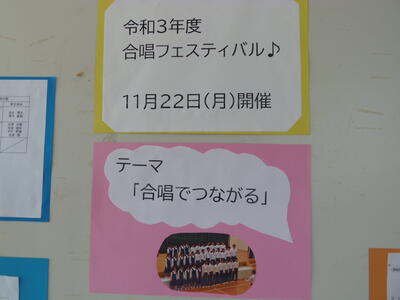 令和3年度
合唱フェスティバル♪
11月22日(月)開催
テーマ
「合唱でつながる」